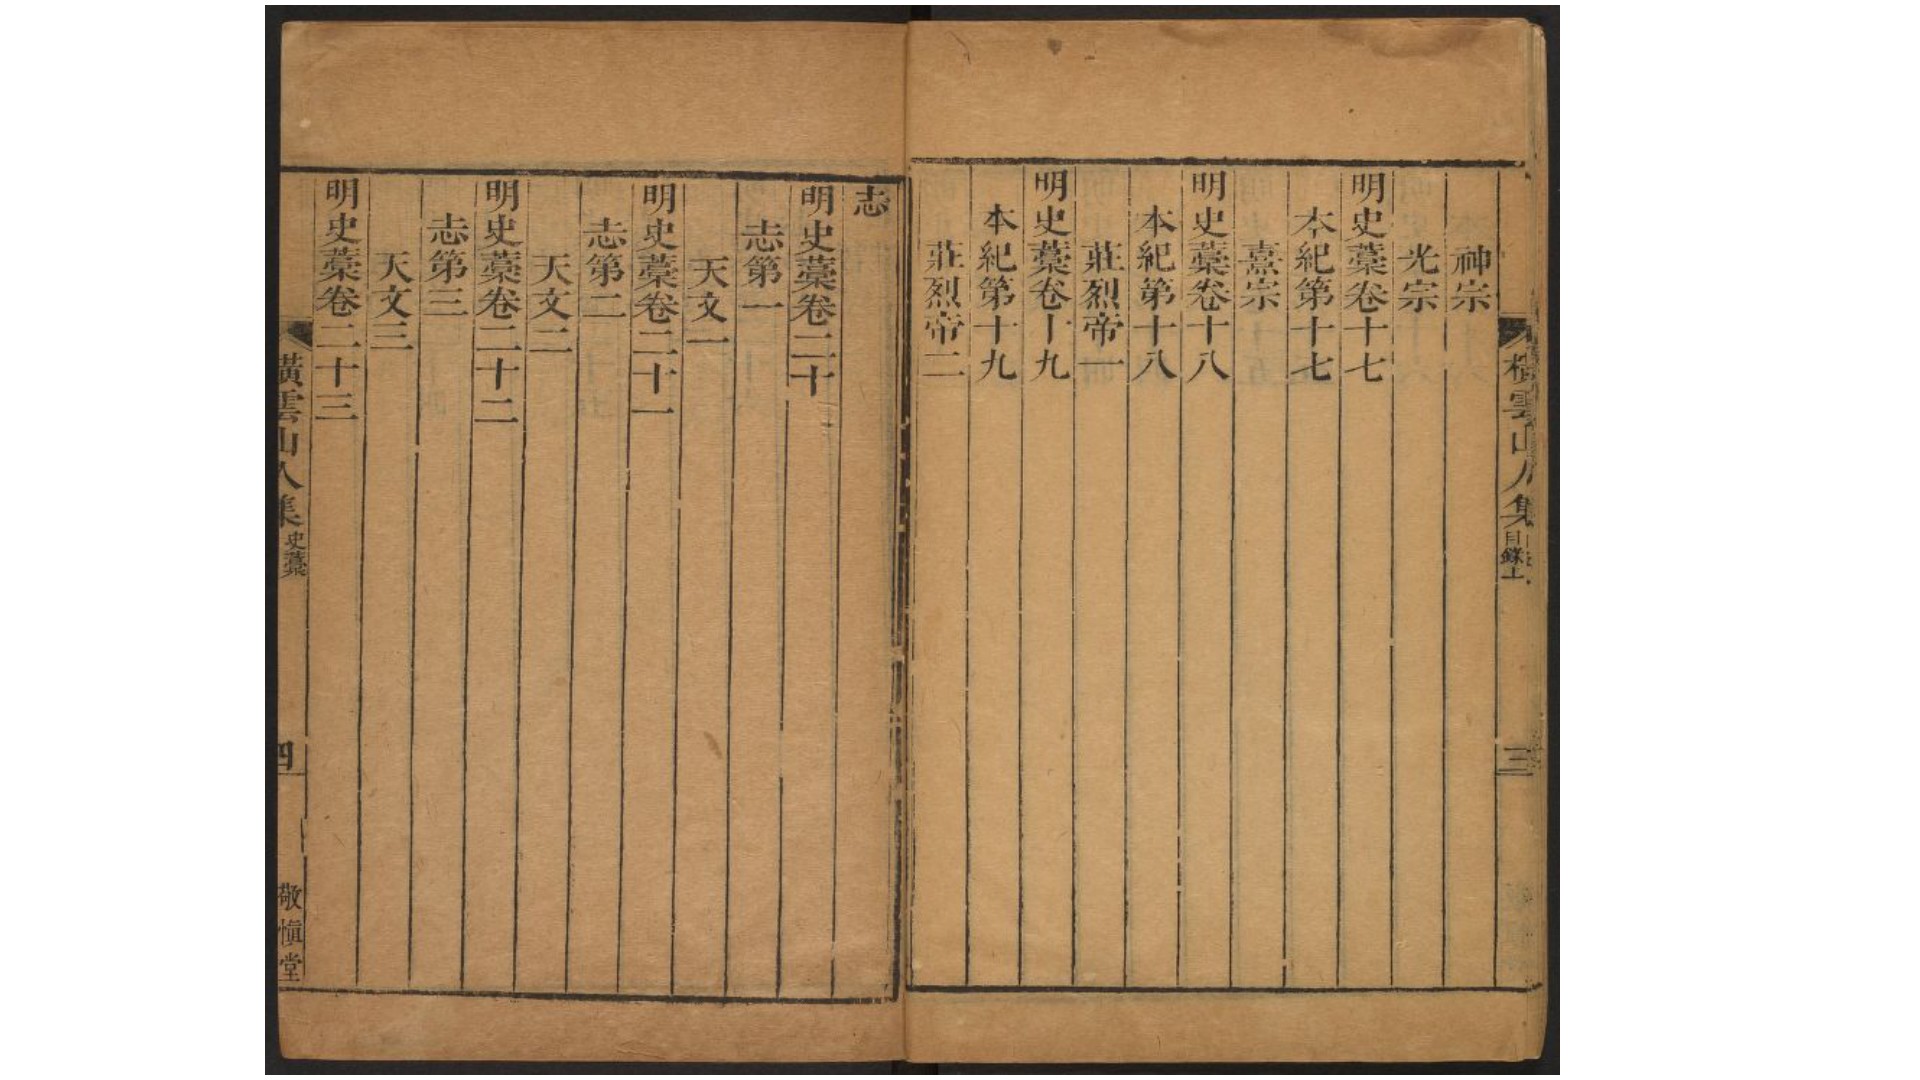 橫雲山人集
目錄上
三
神宗
光宗
明史藁卷十七
本紀第十七
熹宗
明史藁卷十八
本紀第十八
莊烈帝一
明史藁卷十九
本紀第十九
莊烈帝二
志
明史藁卷二十
志第一
天文一
明史藁卷二十一
志第二
天文二
明史藁卷二十二
志第三
天文三
明史藁卷二十三
橫雲山人集
史藁
四
敬愼堂